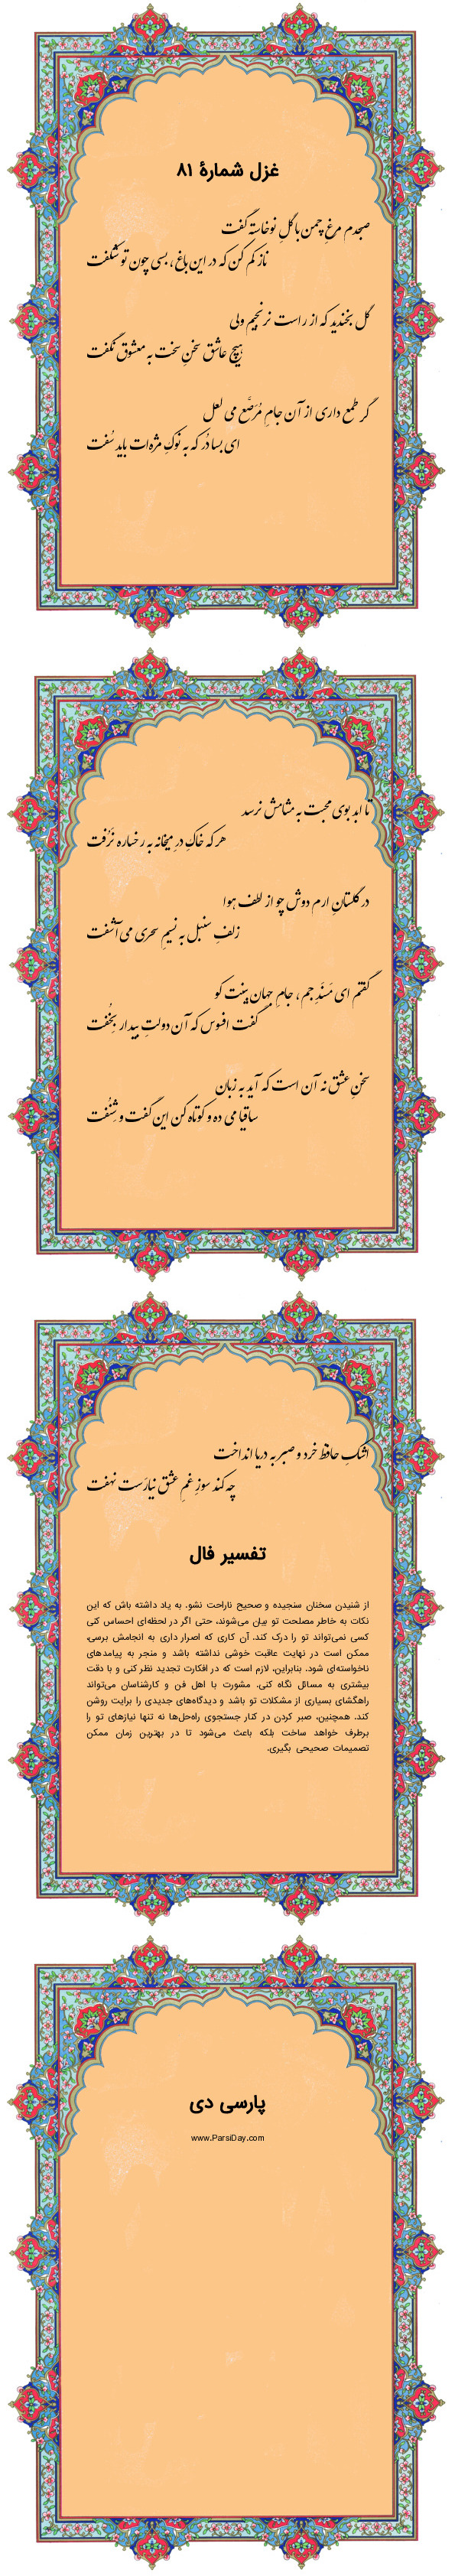 غزل شمارهٔ ۸۱
صبحدم مرغِ چمن با گلِ نوخاسته گفت
ناز کم کن که در این باغ، بسی چون تو شکفت
گل بخندید که از راست نرنجیم ولی
هیچ عاشق سخنِ سخت به معشوق نگفت
گر طمع داری از آن جامِ مُرَصَّع می لعل
ای بسا دُر که به نوکِ مژه‌ات باید سُفت
تا ابد بوی محبت به مشامش نرسد
هر که خاکِ درِ میخانه به رخساره نَرُفت
در گلستانِ ارم دوش چو از لطف هوا
زلفِ سنبل به نسیمِ سحری می‌آشفت
گفتم ای مَسنَدِ جم، جامِ جهان بینت کو
گفت افسوس که آن دولتِ بیدار بِخُفت
سخنِ عشق نه آن است که آید به زبان
ساقیا می ده و کوتاه کن این گفت و شِنُفت
اشکِ حافظ خرد و صبر به دریا انداخت
چه کند سوزِ غمِ عشق نیارَست نهفت
تفسیر فال
از شنیدن سخنان سنجیده و صحیح ناراحت نشو. به یاد داشته باش که این
نکات به خاطر مصلحت تو بیان می‌شوند، حتی اگر در لحظه‌ای احساس کنی
کسی نمی‌تواند تو را درک کند. آن کاری که اصرار داری به انجامش برسی،
ممکن است در نهایت عاقبت خوشی نداشته باشد و منجر به پیامدهای
ناخواسته‌ای شود. بنابراین، لازم است که در افکارت تجدید نظر کنی و با دقت
بیشتری به مسائل نگاه کنی. مشورت با اهل فن و کارشناسان می‌تواند
راهگشای بسیاری از مشکلات تو باشد و دیدگاه‌های جدیدی را برایت روشن
کند. همچنین، صبر کردن در کنار جستجوی راه‌حل‌ها نه تنها نیازهای تو را
برطرف خواهد ساخت بلکه باعث می‌شود تا در بهترین زمان ممکن
تصمیمات صحیحی بگیری.
پارسی دی
www.ParsiDay.com